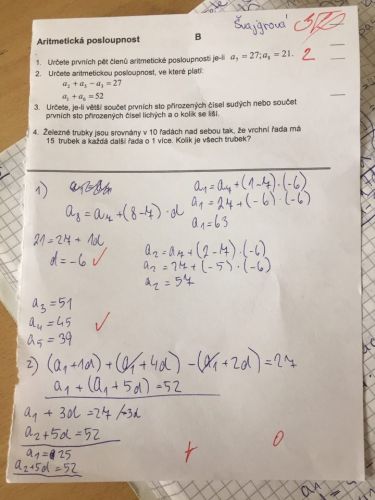 Švajgrová
Aritmetická posloupnost B
1. Určete prvních pět členů aritmetické posloupnosti je-li a₇ = 27; a₈ = 21. 2
2. Určete aritmetickou posloupnost, ve které platí:
a₂ + a₅ − a₃ = 27
a₁ + a₆ = 52
3. Určete, je-li větší součet prvních sto přirozených čísel sudých nebo součet
prvních sto přirozených čísel lichých a o kolik se liší.
4. Železné trubky jsou srovnány v 10 řadách nad sebou tak, že vrchní řada má
15 trubek a každá další řada o 1 více. Kolik je všech trubek?
1)
a₈ = a₇ + (8-7) · d
21 = 27 + 1d
d = -6 ✓
a₁ = a₇ + (1-7) · (-6)
a₁ = 27 + (-6) · (-6)
a₁ = 63
a₂ = a₇ + (2-7) · (-6)
a₂ = 27 + (-5) · (-6)
a₂ = 57
a₃ = 51
a₄ = 45 ✓
a₅ = 39
2) (a₁ + 1d) + (a₁ + 4d) - (a₁ + 2d) = 27
a₁ + (a₁ + 5d) = 52
a₁ + 3d = 27 /-3d
a₂ + 5d = 52
a₁ = 25
a₂ + 5d = 52
+ 0